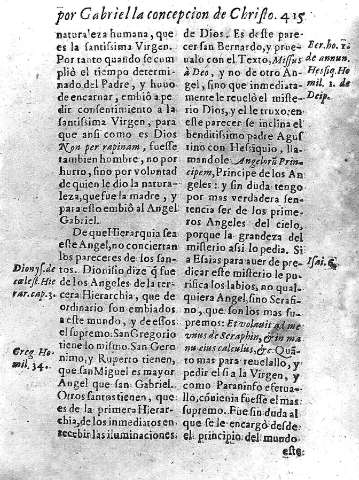 por Gabriel la concepcion de Christo. 415
naturaleza humana, que
es la santissima Virgen.
Por tanto quando se cum
plió el tiempo determi-
nado del Padre, y hubo
de encarnar, embió a pe-
dir consentimiento a la
santissima Virgen, para
que ansi como es Dios
Non per rapinam, fuesse
tambien hombre, no por
hurto, sino por voluntad
de quien le dio la natura-
leza, que fue la madre, y
para esto embiò al Angel
Gabriel.
De que Hierarquia sea
este Angel, no conciertan
los pareceres de los san-
tos. Dionisio dize q̃ fue
de los Angeles de la ter-
cera Hierarchia, que de
ordinario son embiados
a este mundo, y de essos
el supremo. San Gregorio
tiene lo mismo. San Gero
nimo, y Ruperto tienen,
que san Miguel es mayor
Angel que san Gabriel.
Otros santos tienen, que
es de la primera Hierar-
chia, de los inmediatos en
recebir las iluminaciones
Dionys. de
cælest. Hie
rar. cap. 3.
Greg. Ho
mil. 34.
de Dios. Es deste pare-
cer san Bernardo, y prue-
ualo con el Texto, Missus
à Deo, y no de otro An-
gel, sino que inmediata-
mente le reuelò el miste-
rio Dios, y el le truxo: en
esse parecer se inclina el
benditissimo padre Agus
tino con Hessiquio, lla-
mandole Angelorũ Prin-
cipem, Principe de los An
geles: y sin duda tengo
por mas verdadera sen-
tencia ser de los prime-
ros Angeles del cielo,
porque la grandeza del
misterio assi lo pedia. Si
a Esaias para auer de pre-
dicar este misterio le pu-
rifica los labios, no qual-
quiera Angel, sino Serafi-
no, que son los mas su-
premos: Et volauit ad me
vnus de Seraphin, & in ma
nu eius calculus, &c. Quã-
to mas para reuelallo, y
pedir el si a la Virgen, y
como Paraninfo efetua-
llo, cõuienia fuesse el mas
supremo. Fue sin duda al
que se le encargò desde
el principio del mundo
Ber. ho. 1.
de annun.
Hesiq. Ho
mil. 2. de
Deip.
Isai. 6.
este